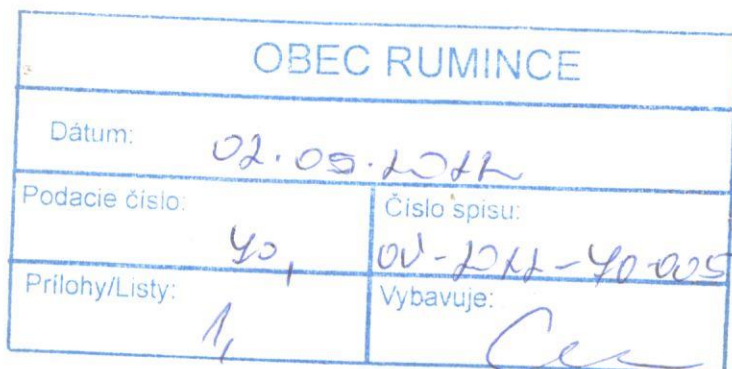 OBEC RUMINCE
Dátum: 02.05.2022
Podacie číslo: 40,
Číslo spisu: OÚ-2022-40-005
Prílohy/Listy: 1,
Vybavuje: